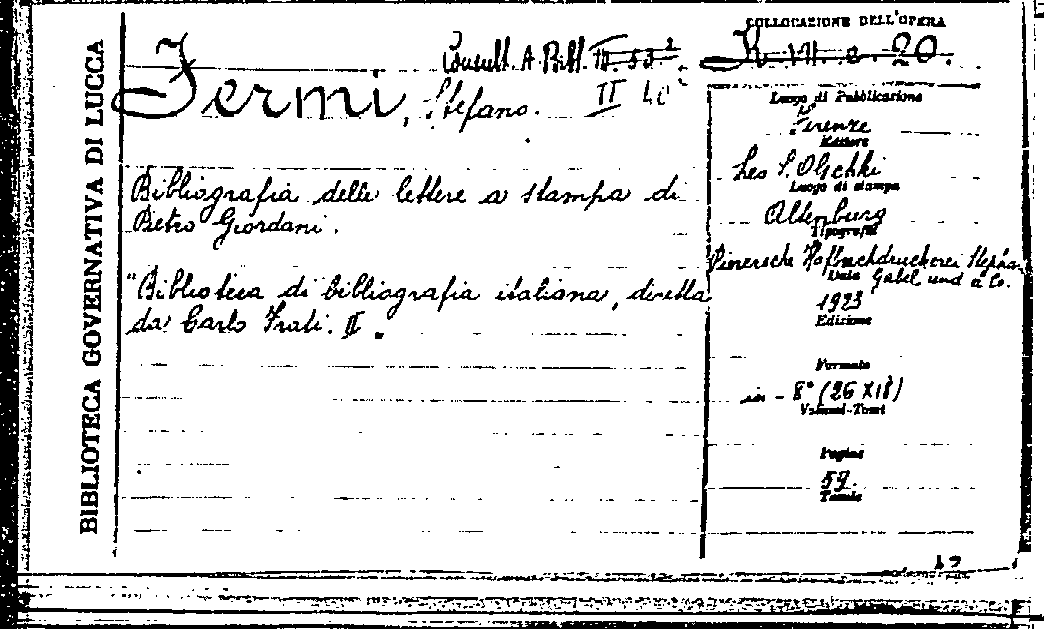 BIBLIOTECA GOVERNATIVA DI LUCCA
COLLOCAZIONE DELL'OPERA
Consult. A. Bibl. 
II 40
Fermi, Stefano.
Bibliografia delle lettere a stampa di
Pietro Giordani.
"Biblioteca di bibliografia italiana, diretta
da Carlo Frati. II.
Luogo di Pubblicazione
Firenze
Editore
Leo S. Olschki
Luogo di stampa
Altenburg
Tipografia
Pierersche Hofbuchdruckerei Stephan
Data Gabel und a Co.
1923
Edizione
Formato
in - 8° (26 X 18)
Volumi-Tomi
Pagine
59.
Tavole